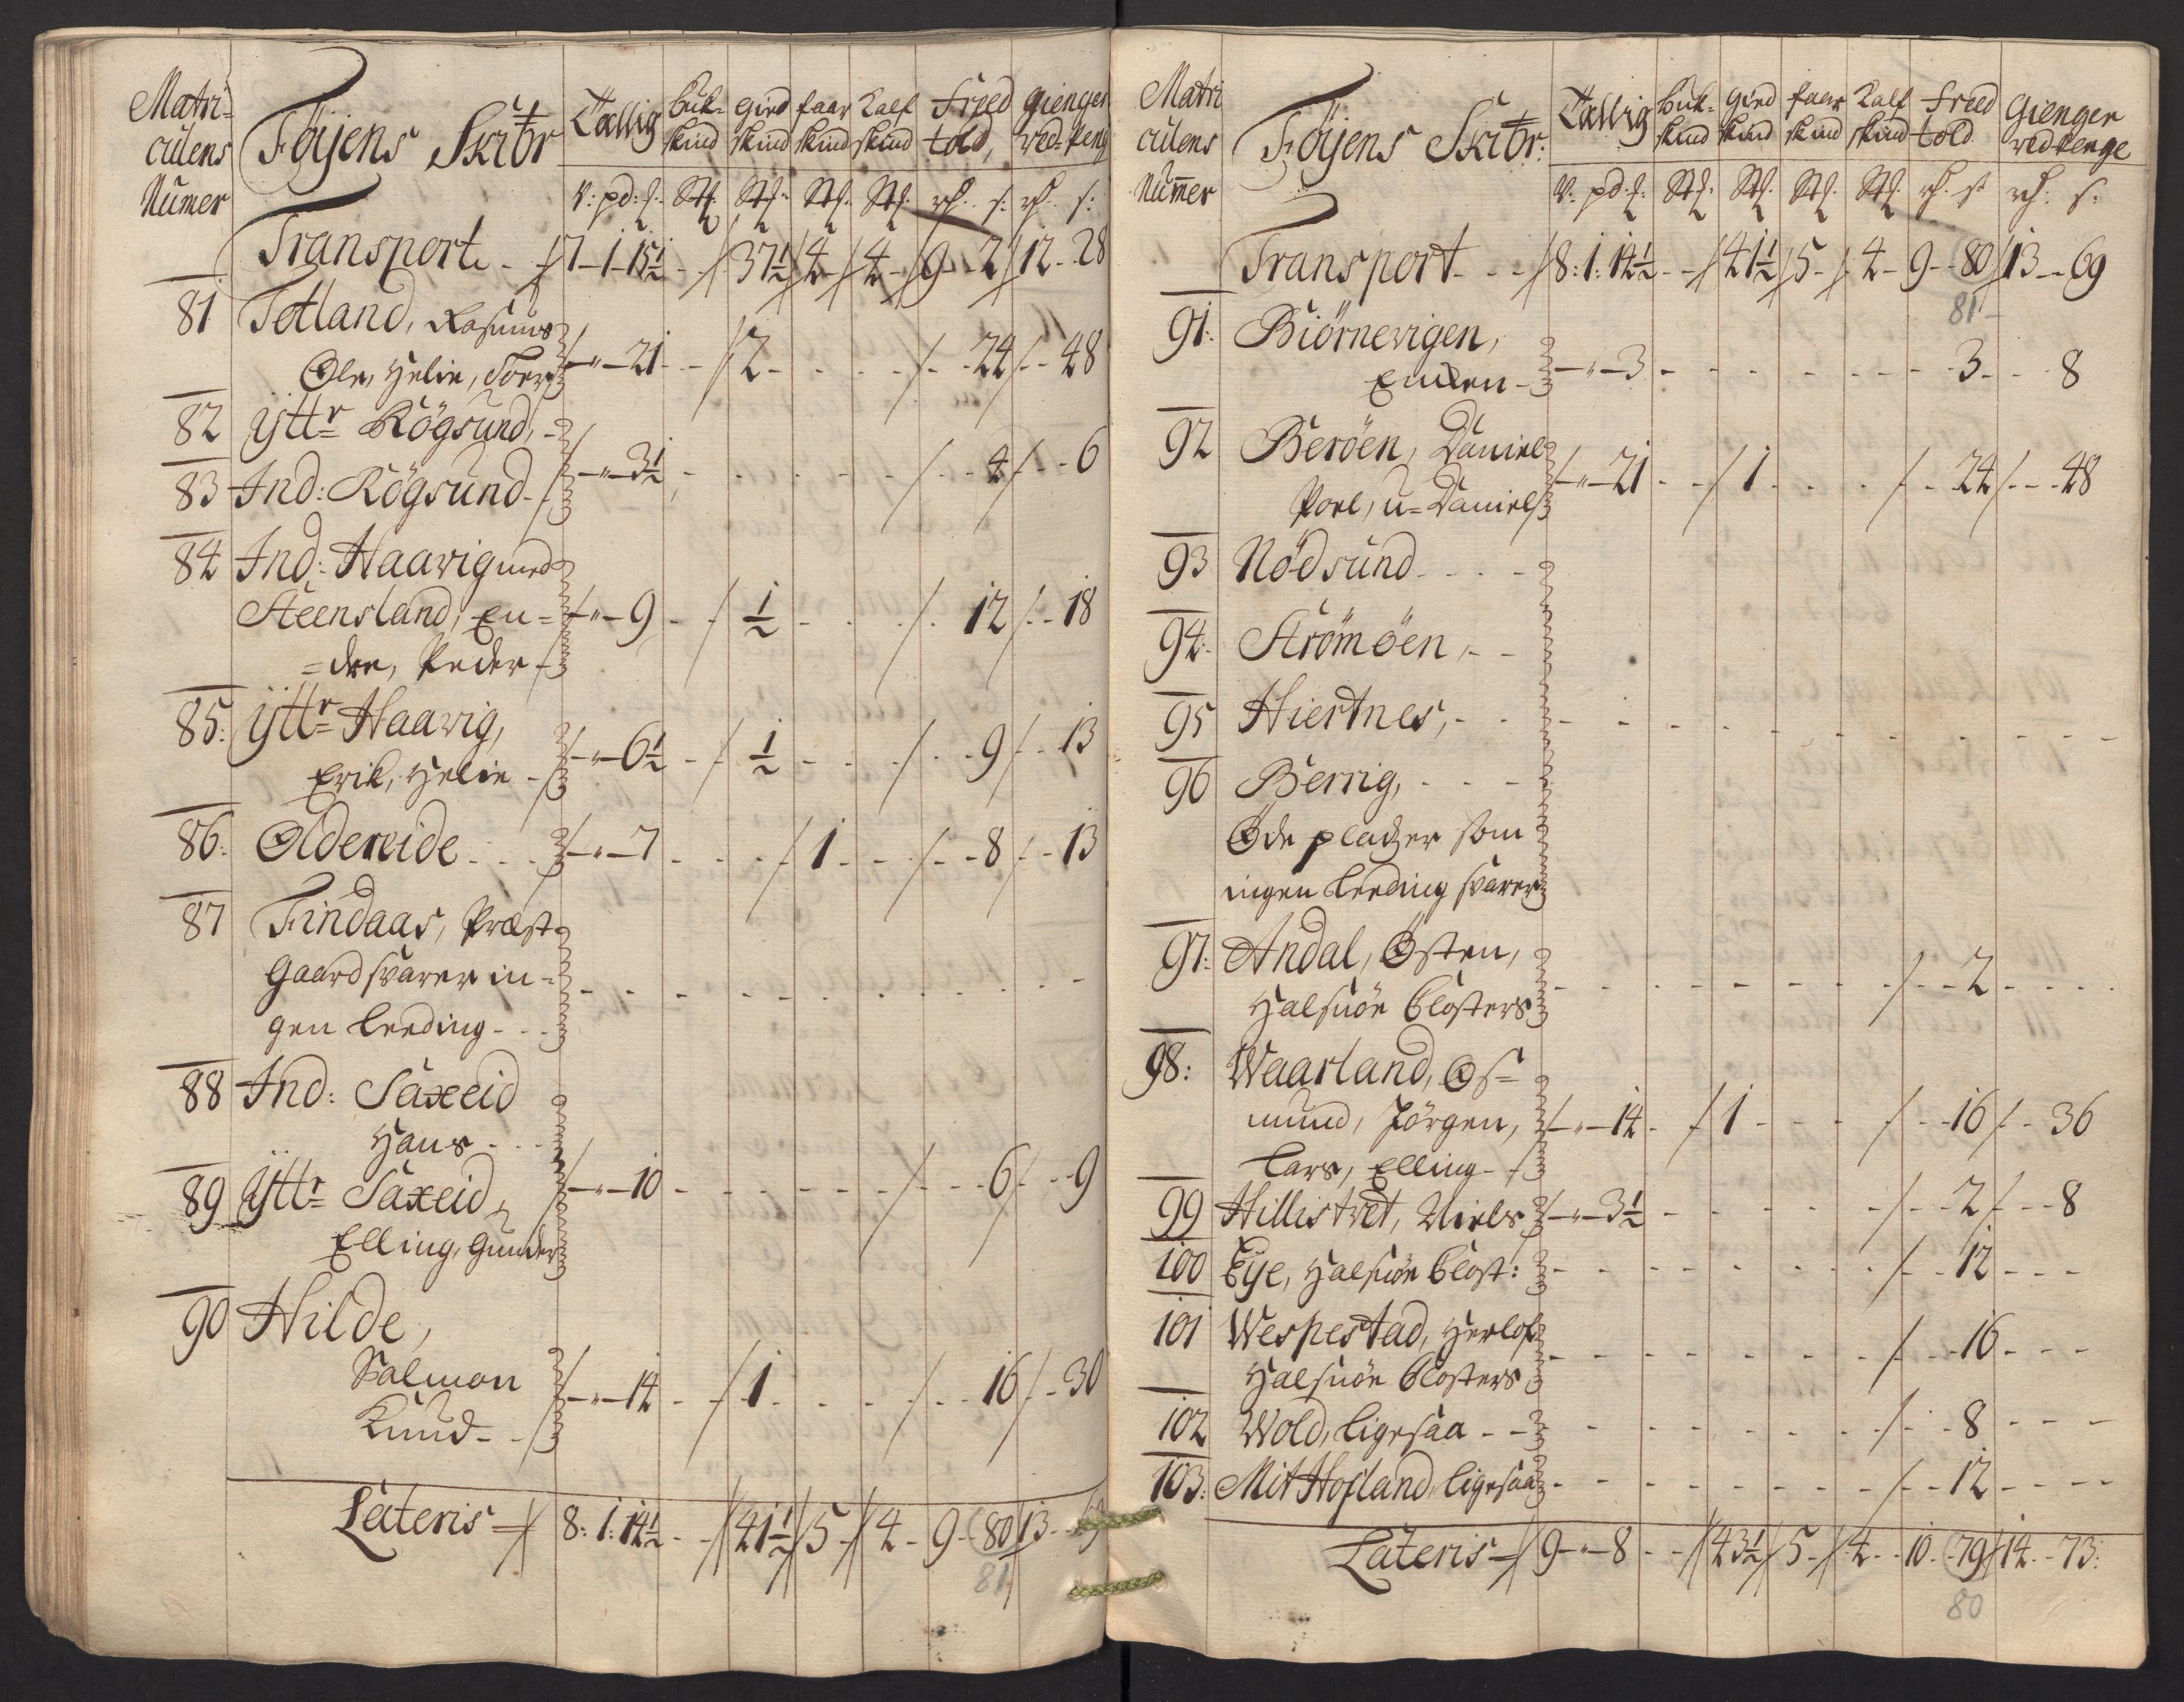 Matri-
culens
Numer
Föyens Skibr
Tallig
buk-
skind
gied
skind
faar
skind
Kalf
skind
Fried
told,
gienger
ved peng
V: pd: ʃ:
Stʃ:
Stʃ:
Stʃ:
Stʃ:
rd. s:
rd. s:
Transport. - 7-1-15½ - - 37½ 4 - 4 - 9 - 2 12 - 28
81 Totland, Rasmus
Ole, Helie, Toer - " - 21 - - 2 - - - - - 24 - - 48
82 Ÿttr Rögsund,
83 Ind: Rögsund - - " - 3½ - - - - - - 4 - - 6
84 Ind: Haavig med
Steensland, En= - " - 9 - - ½ - - - 12 - - 18
=dre, Peder
85: Ÿttr Haavig,
Erik, Helie - - " - 6½ - - ½ - - - - 9 - - 13
86: Oldereide - - - - " - 7 - - - 1 - - - - 8 - - 13
87 Findaas, Præst
Gaard svarer in-
gen Leeding - - -
88 Ind: Saxeid
Hans - - -
89 Ÿttr Saxeid, - " - 10 - - - - - - - 6 - - 9
Elling, Gunder
90 Hilde,
Salmon
Knud - - - " - 14 - - 1 - - - - - 16 - - 30
Lateris 8: 1: 14½ - - 41½ 5 - 4 - 9 - 80 13 - 69
81
Matri
culens
Numer
Föyens Skibr:
Tallig
buk-
skind
gied
skind
faar
skind
Kalf
skind
Fried
told
Gienger
ved penge
V: pd: ʃ:
Stʃ:
Stʃ:
Stʃ:
Stʃ:
rd. s
rd: s:
Transport - - - 8: 1: 14½ - - 41½ 5 - 4 - 9 - - 80 13 - - 69
81
91: Biörnevigen,
- " - 3 - - - - - - - 3 - - - 8
92 Beröen, Daniel
Poel, u= Daniel - " - 21 - - 1 - - - - - 24 - - - 48
93 Nödsund - - - -
94: Strömöen, - -
95 Hiertnes, - -
96 Berrig, - - -
Öde pladzer som
ingen Leeding svarer
97: Andal, Østen,
Halsnöe Closters - - - - - - - - - 2 - - - -
98: Waarland, Os=
mund, Jörgen, - " - 14 - - 1 - - - - - 16 - - 36
Lars, Elling -
99 Hillistvet, Niels - " - 3½ - - - - - - - 2 - - - 8
100 Eye, Halsnöe Clost: - - - - - - - - 12 - - -
101 Wespestad, Herlof
Halsnöe Closters - - - - - - - - 16 - - -
102 Wold, ligesaa - - - - - - - - - - 8 - - -
103: Mit Hofland, ligesaa - - - - - - - - 12 - - -
Lateris 9 - " - 8 - - 43½ 5 - 4 - - 10 - 79 14 - - 73:
80